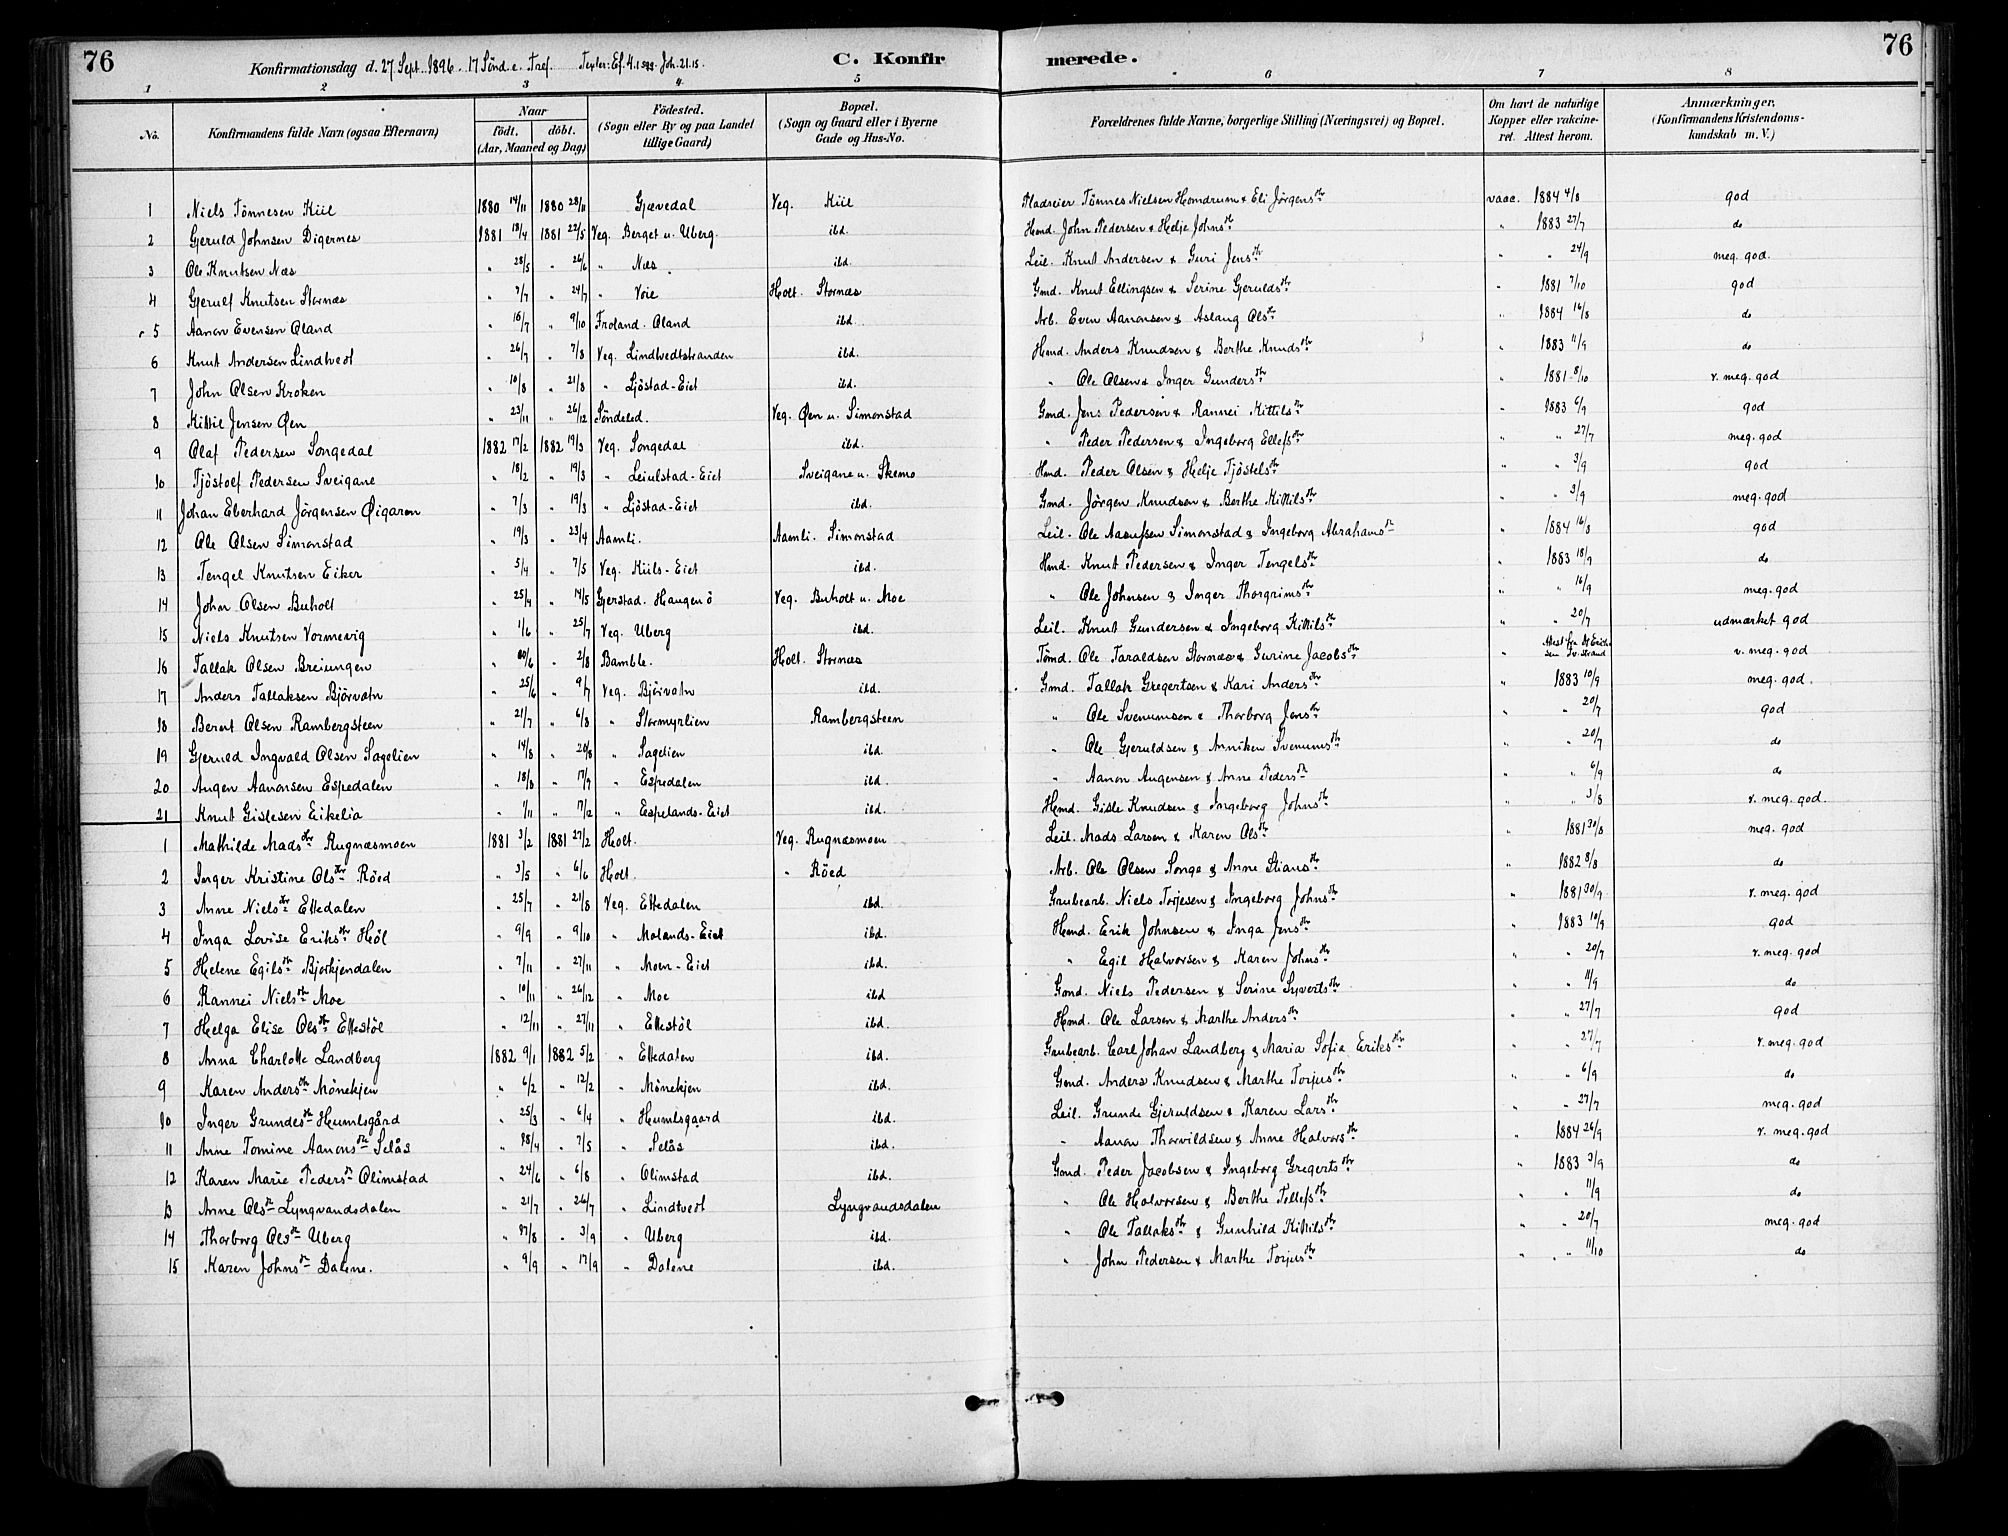 76 Konfirmationsdag d. 27 Sept. 1896. 17 Sönd. e. Tref. Texter: Ef. 4.1 Joh. 21.15. C. Konfirmerede. 76
1 2 3 4. 5 6 7 8
No. Konfirmandens fulde Navn (ogsaa Efternavn) Naar födt. döbt. (Aar, Maaned og Dag) Födested. (Sogn eller By og paa Landet tillige Gaard) Bopæl. (Sogn og Gaard eller i Byerne Gade og Hus-No. Forældrenes fulde Navne, borgerlige Stilling (Næringsvei) og Bopæl. Om havt de naturlige Kopper eller vakcineret. Attest herom. Anmærkninger, (Konfirmandens Kristendomskundskab m. V.)
1 Niels Tönnesen Kiil 1880 14/11 1880 28/11 Gjævedal Veg. Kiil Pladseier Tönnes Nielsen Homdrum & Eli Jörgensdtr vacc. 1884 4/8 god
2 Gjeruld Johnsen Digernes 1881 18/4 1881 22/5 Veg. Berget u. Uberg. ibd. Hmd. John Pedersen & Helje Johnsdtr " 1883 27/7 do
3 Ole Knutsen Næs " 28/5 " 26/6 " Næs ibd. Leil. Knut Andersen & Guri Jensdtr " " 24/9 meg. god.
4 Gjerulf Knutsen Stornæs " 7/7 " 24/7 " Voie Holt. Stornæs Gmd. Knut Ellingsen & Serine Gjeruldsdtr " 1881 7/10 god
5 Aanon Evensen Oland " 16/7 " 9/10 Froland. Oland ibd. Arb. Even Aanonsen & Aslaug Olsdtr " 1884 16/8 do
6 Knut Andersen Lindtvedt " 26/7 " 7/8 Veg. Lindtvedtstranden ibd. Hmd. Anders Knudsen & Berthe Knudsdtr " 1883 11/9 do
7 John Olsen Kroken " 10/8 " 21/8 " Ljöstad-Eiet ibd. " Ole Olsen & Inger Gundersdtr " 1881 8/10 v. meg. god
8 Kittil Jensen Øen " 23/11 " 26/12 Söndeled. Veg. Øen u. Simonstad Gmd. Jens Pedersen & Rannei Kittilsdtr " 1883 6/9 god
9 Olaf Pedersen Songedal 1882 17/2 1882 19/3 Veg. Songedal ibd. " Peder Pedersen & Ingeborg Ellefsdtr " " 27/7 meg. god
10 Tjöstolf Pedersen Sveigane " 18/2 " 19/3 " Leiulstad-Eiet Sveigane u. Skemo Hmd. Peder Olsen & Helje Tjöstelsdtr " " 3/9 god
11 Johan Eberhard Jörgensen Øigaren " 7/3 " 19/3 " Ljöstad-Eiet ibd. Gmd. Jörgen Knudsen & Berthe Kittilsdtr " " 3/9 meg. god
12 Ole Olsen Simonstad " 19/3 " 23/4 Aamli. Aamli. Simonstad Leil. Ole Aasufsen Simonstad & Ingeborg Abrahamsdtr " 1884 16/8 god
13 Tengel Knutsen Eiker " 5/4 " 7/5 Veg. Kiils-Eiet ibd. Hmd. Knut Pedersen & Inger Tengelsdtr " 1883 18/9 do
14 John Olsen Buholt " 25/4 " 14/5 Gjerstad. Haugen ö Veg. Buholt u. Moe " Ole Johnsen & Inger Thorgrimsdtr " " 16/9 meg. god
15 Niels Knutsen Vormevig " 1/6 " 25/7 Veg. Uberg ibd. Leil. Knut Gundersen & Ingeborg Kittilsdtr " " 20/7 udmærket god
16 Tallak Olsen Breiungen " 20/6 " 2/8 Bamble. Holt. Stornæs Tömd. Ole Taraldsen Stornæs & Gurine Jacobsdtr " Attest fra v. meg. god
17 Anders Tallaksen Björvatn " 25/6 " 9/7 Veg. Björvatn ibd. Gmd. Tallak Gregertsen & Kari Andersdtr " 1883 10/9 meg. god.
18 Bernt Olsen Rambergsteen " 21/7 " 6/8 " Stormyrlien Rambergsteen " Ole Svenumsen & Thorborg Jensdtr " " 20/7 god
19 Gjeruld Ingvald Olsen Sagelien " 14/8 " 20/8 " Sagelien ibd. " Ole Gjeruldsen & Anniken Svenumsdtr " " 20/7 do
20 Augen Aanonsen Espedalen " 18/8 " 17/9 " Espedalen ibd. " Aanon Augensen & Anne Pedersdtr " " 6/9 do
21 Knut Gislesen Eikelia " 1/11 " 7/12 " Espelands-Eiet ibd. Hmd. Gisle Knudsen & Ingeborg Johnsdtr " " 3/8 v. meg. god.
1 Mathilde Madsdtr Rugnæsmoen 1881 3/2 1881 27/2 Holt. Veg. Rugnæsmoen Leil. Mads Larsen & Karen Olsdtr " 1881 30/8 meg. god
2 Inger Kristine Olsdtr Röed " 3/5 " 6/6 Holt. " Röed Arb. Ole Olsen Songe & Anne Stiansdtr " 1882 8/8 do
3 Anne Nielsdtr Ettedalen " 25/7 " 21/8 Veg. Ettedalen ibd. Grubearb. Niels Torjesen & Ingeborg Johnsdtr " 1881 30/9 v. meg. god
4 Inga Lovise Eriksdtr Höl " 9/9 " 9/10 " Molands-Eiet ibd. Hmd. Erik Johnsen & Inga Jensdtr " 1883 10/9 god
5 Helene Egilsdtr Bjorkjendalen " 7/11 " 27/11 " Moen-Eiet ibd. " Egil Halvorsen & Karen Johnsdtr " " 20/7 v. meg. god
6 Rannei Nielsdtr Moe " 10/11 " 26/12 " Moe ibd Gmd. Niels Pedersen & Serine Syvertsdtr " " 11/9 do
7 Helga Elise Olsdtr Ettestöl " 12/11 " 27/11 " Ettestöl ibd. Hmd. Ole Larsen & Marthe Andersdtr " " 27/7 god
8 Anna Charlotte Landberg 1882 9/1 1882 5/2 " Ettedalen ibd. Grubearb. Carl Johan Landberg & Maria Sofia Eriksdtr " " 27/7 v. meg. god
9 Karen Andersdtr Mönekjen " 6/2 " 12/2 " Mönekjen ibd. Gmd. Anders Knudsen & Marthe Torjusdtr " " 6/9 do
10 Inger Grundesdtr Humlsgård " 25/3 " 6/4 " Humlsgaard ibd. Leil. Grunde Gjeruldsen & Karen Larsdtr " " 27/7 meg. god
11 Anne Tomine Aanonsdtr Selås " 28/4 " 7/5 " Selås ibd. " Aanon Thorvildsen & Anne Halvorsdtr " 1884 26/9 v. meg. god
12 Karen Marie Pedersdtr Olimstad " 24/6 " 6/8 " Olimstad ibd. Gmd. Peder Jacobsen & Ingeborg Gregertsdtr " 1883 3/9 do
13 Anne Olsdtr Lyngvandsdalen " 21/7 " 26/7 " Lindtvedt Lyngvandsdalen " Ole Halvorsen & Berthe Tellefsdtr " " 11/9 do
14 Thorborg Olsdtr Uberg " 27/8 " 3/9 " Uberg ibd. " Ole Tallaksdtr & Gunhild Kittilsdtr " " 20/7 meg. god
15 Karen Johnsdtr Dalene. " 9/9 " 17/9 " Dalene ibd. " John Pedersen & Marthe Torjusdtr " " 11/10 do